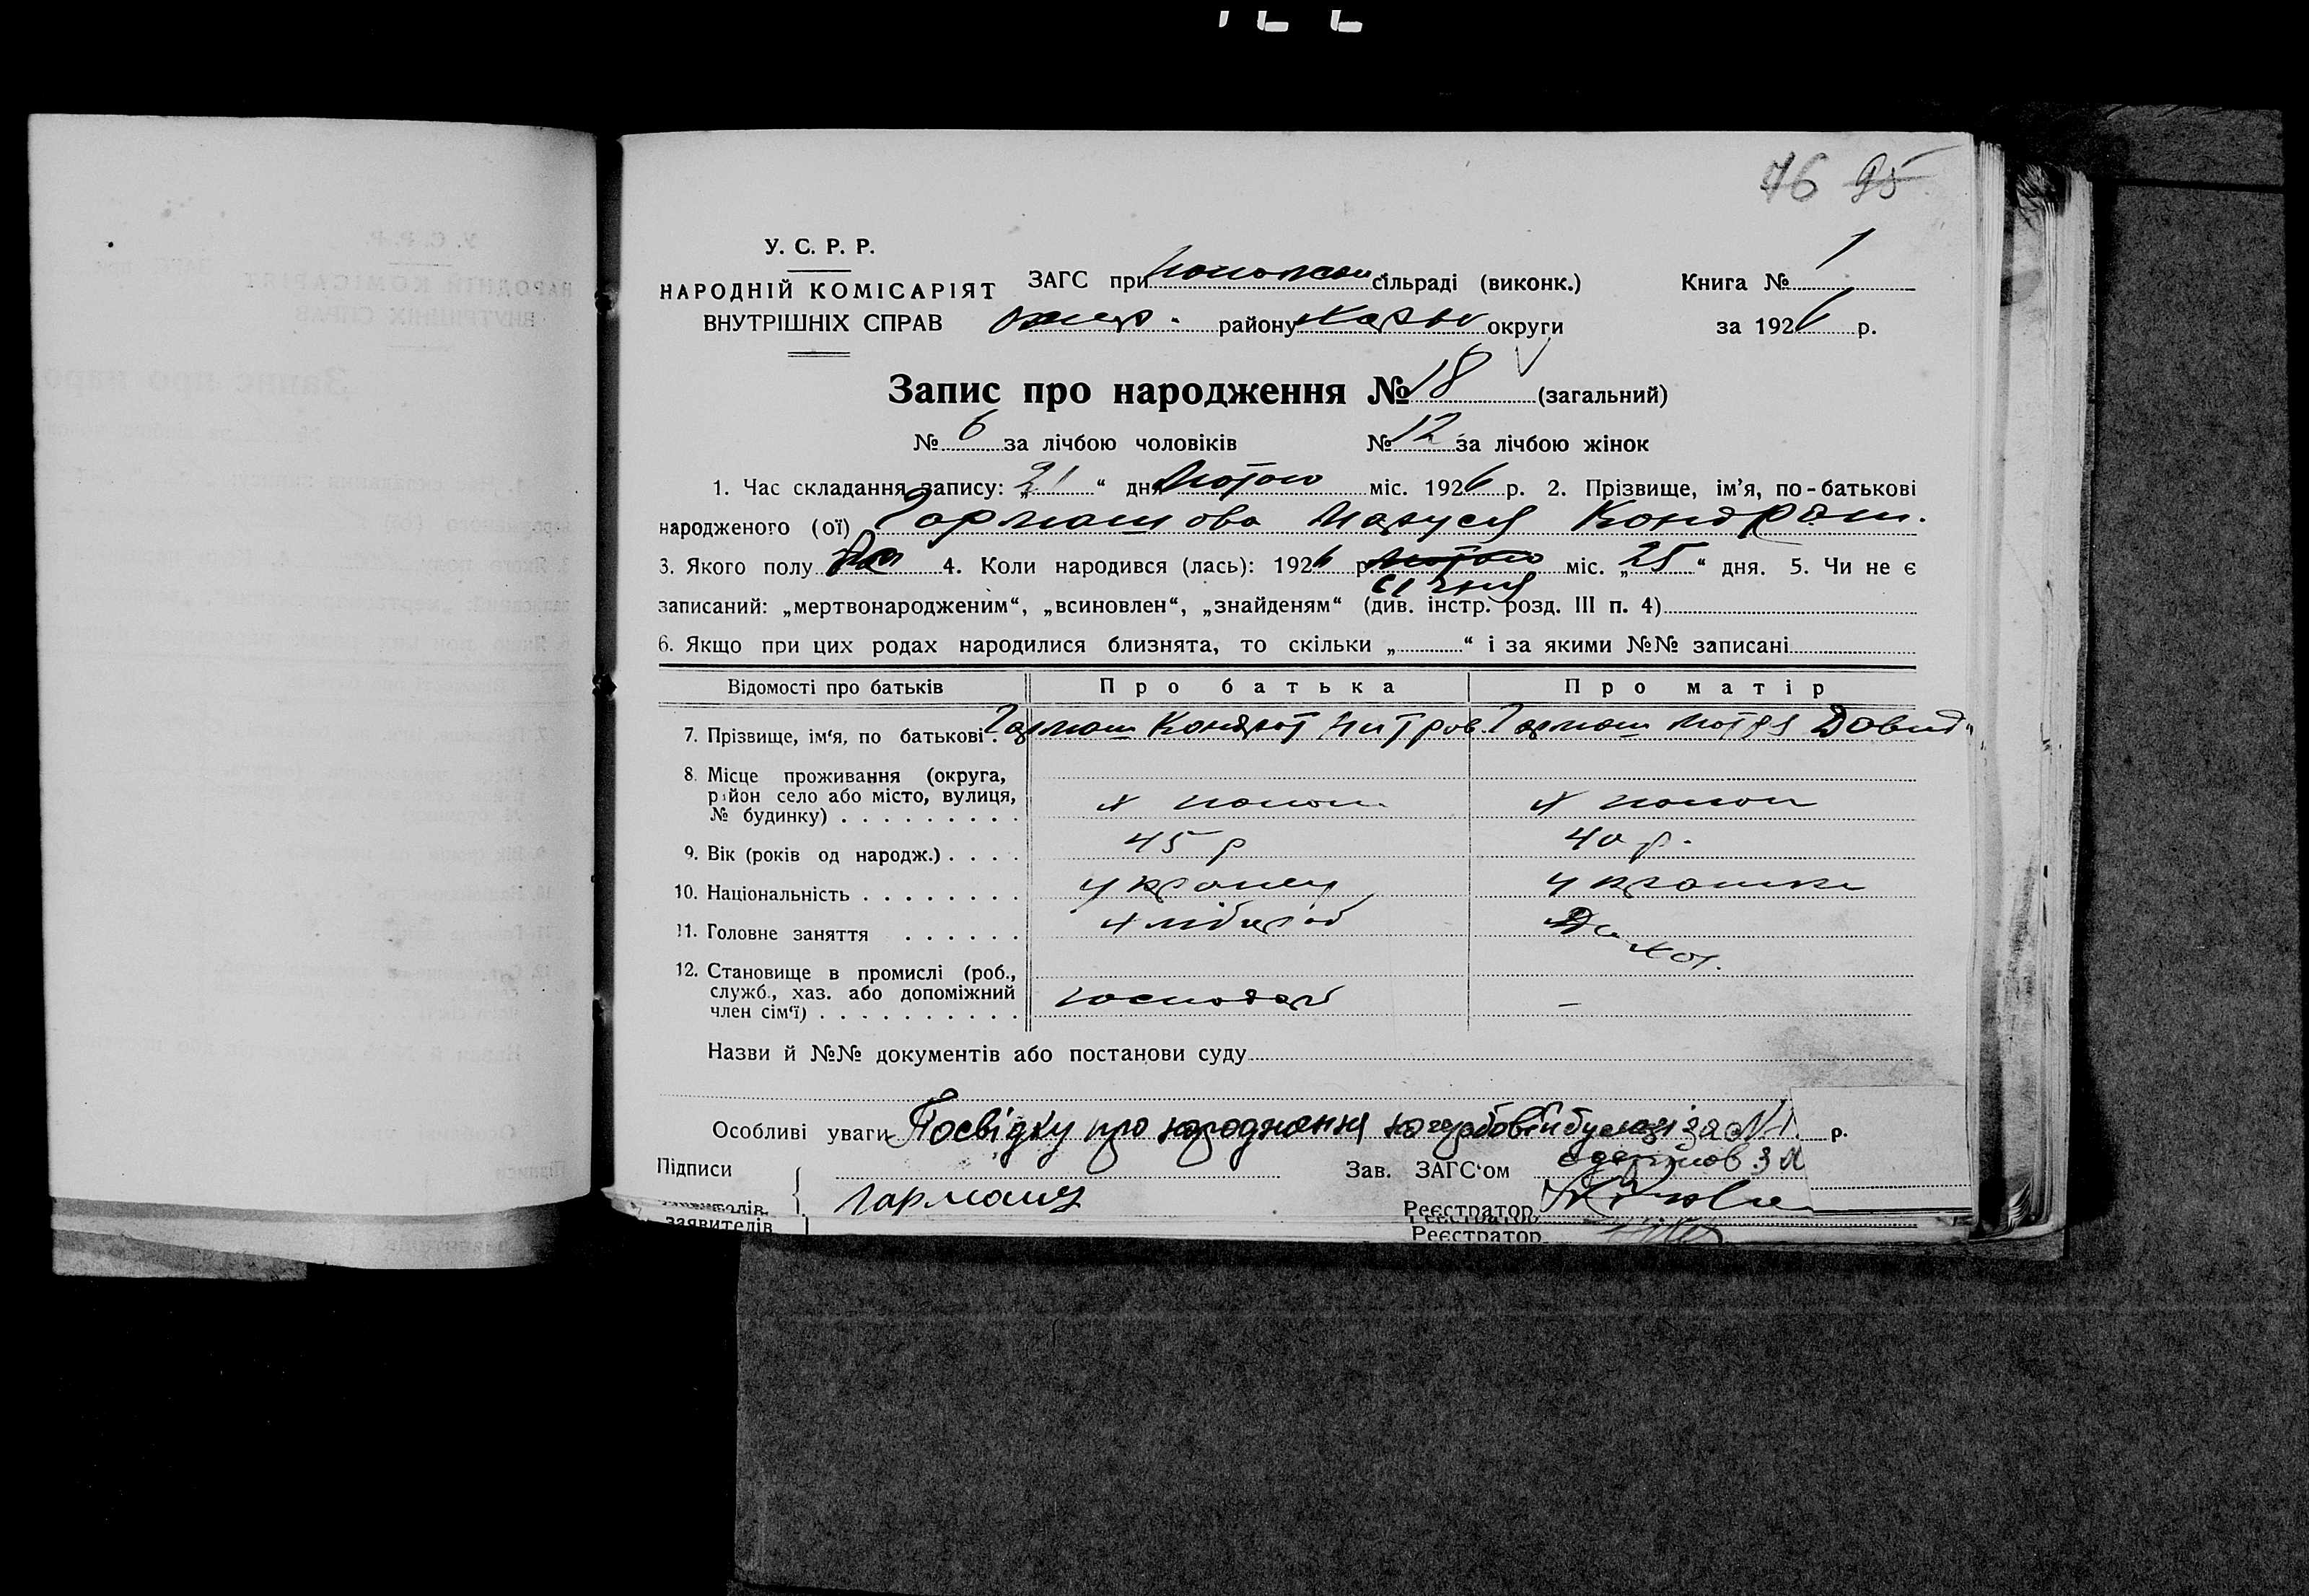 76 95
У. С. Р. Р.
НАРОДНІЙ КОМІСАРІЯТ
ВНУТРІШНІХ СПРАВ
ЗАГС при сільраді (виконк.)
району Харьк округи
Книга № 1
за 1926 р.
Запис про народження № 18 (загальний)
№ 6 за лічбою чоловіків № 12 за лічбою жінок
1. Час складання запису: „21“ дня Лютого міс. 1926 р. 2. Прізвище, ім’я, по-батькові
народженого (ої) Гармашова Маруся Кондрат.
3. Якого полу 4. Коли народився (лась): 1926 р. Лютого міс. „25“ дня. 5. Чи не є
січня
записаний: „мертвонародженим“, „всиновлен“, „знайденям“ (див. інстр. розд. III п. 4)
6. Якщо при цих родах народилися близнята, то скільки „ “ і за якими №№ записані
Відомості про батьків Про батька Про матір
7. Прізвище, ім‘я, по батькові Гармаш Кондрат Митров Гармаш Мотря Давид
8. Місце проживання (округа,
район село або місто, вулиця,
№ будинку)
9. Вік (років од народж.) 45 р 40 р.
10. Національність украінец украінка
11. Головне заняття хлібороб
12. Становище в промислі (роб.,
служб., хаз. або допоміжний
член сім‘ї) господар –
Назви й №№ документів або постанови суду
Особливі уваги Посвідку про народження за № 1 р.
Підписи Зав. ЗАГС‘ом
Гармаш Реєстратор
заявителів
Реєстратор